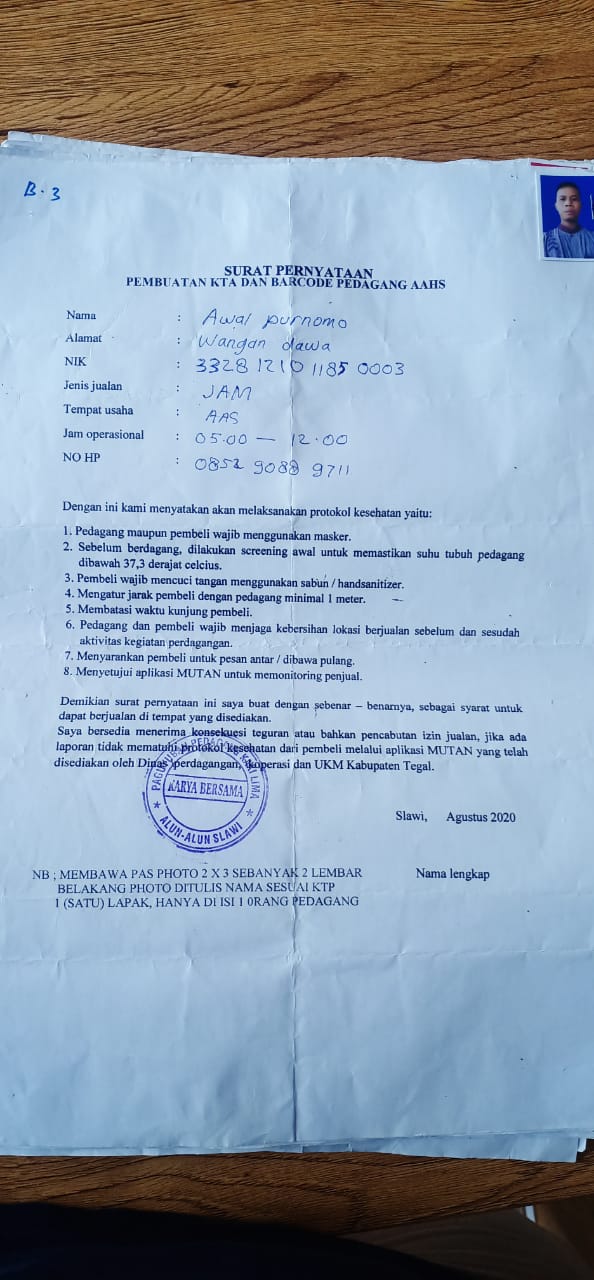 B.3
SURAT PERNYATAAN
PEMBUATAN KTA DAN BARCODE PEDAGANG AAHS
Nama : Awal purnomo
Alamat : Wangan dawa
NIK : 3328 1210 1185 0003
Jenis jualan : JAM
Tempat usaha : AAS
Jam operasional : 05.00 — 12.00
NO HP : 0852 9088 9711
Dengan ini kami menyatakan akan melaksanakan protokol kesehatan yaitu:
1. Pedagang maupun pembeli wajib menggunakan masker.
2. Sebelum berdagang, dilakukan screening awal untuk memastikan suhu tubuh pedagang
dibawah 37,3 derajat celcius.
3. Pembeli wajib mencuci tangan menggunakan sabun / handsanitizer.
4. Mengatur jarak pembeli dengan pedagang minimal 1 meter.
5. Membatasi waktu kunjung pembeli.
6. Pedagang dan pembeli wajib menjaga kebersihan lokasi berjualan sebelum dan sesudah
aktivitas kegiatan perdagangan.
7. Menyarankan pembeli untuk pesan antar / dibawa pulang.
8. Menyetujui aplikasi MUTAN untuk memonitoring penjual.
Demikian surat pernyataan ini saya buat dengan sebenar – benarnya, sebagai syarat untuk
dapat berjualan di tempat yang disediakan.
Saya bersedia menerima konsekuesi teguran atau bahkan pencabutan izin jualan, jika ada
laporan tidak mematuhi protokol kesehatan dari pembeli melalui aplikasi MUTAN yang telah
disediakan oleh Dinas perdagangan, koperasi dan UKM Kabupaten Tegal.
PAGUYUBAN PEDAGANG KAKI LIMA
KARYA BERSAMA
ALUN-ALUN SLAWI
Slawi, Agustus 2020
NB ; MEMBAWA PAS PHOTO 2 X 3 SEBANYAK 2 LEMBAR
BELAKANG PHOTO DITULIS NAMA SESUAI KTP
1 (SATU) LAPAK, HANYA DI ISI 1 0RANG PEDAGANG
Nama lengkap